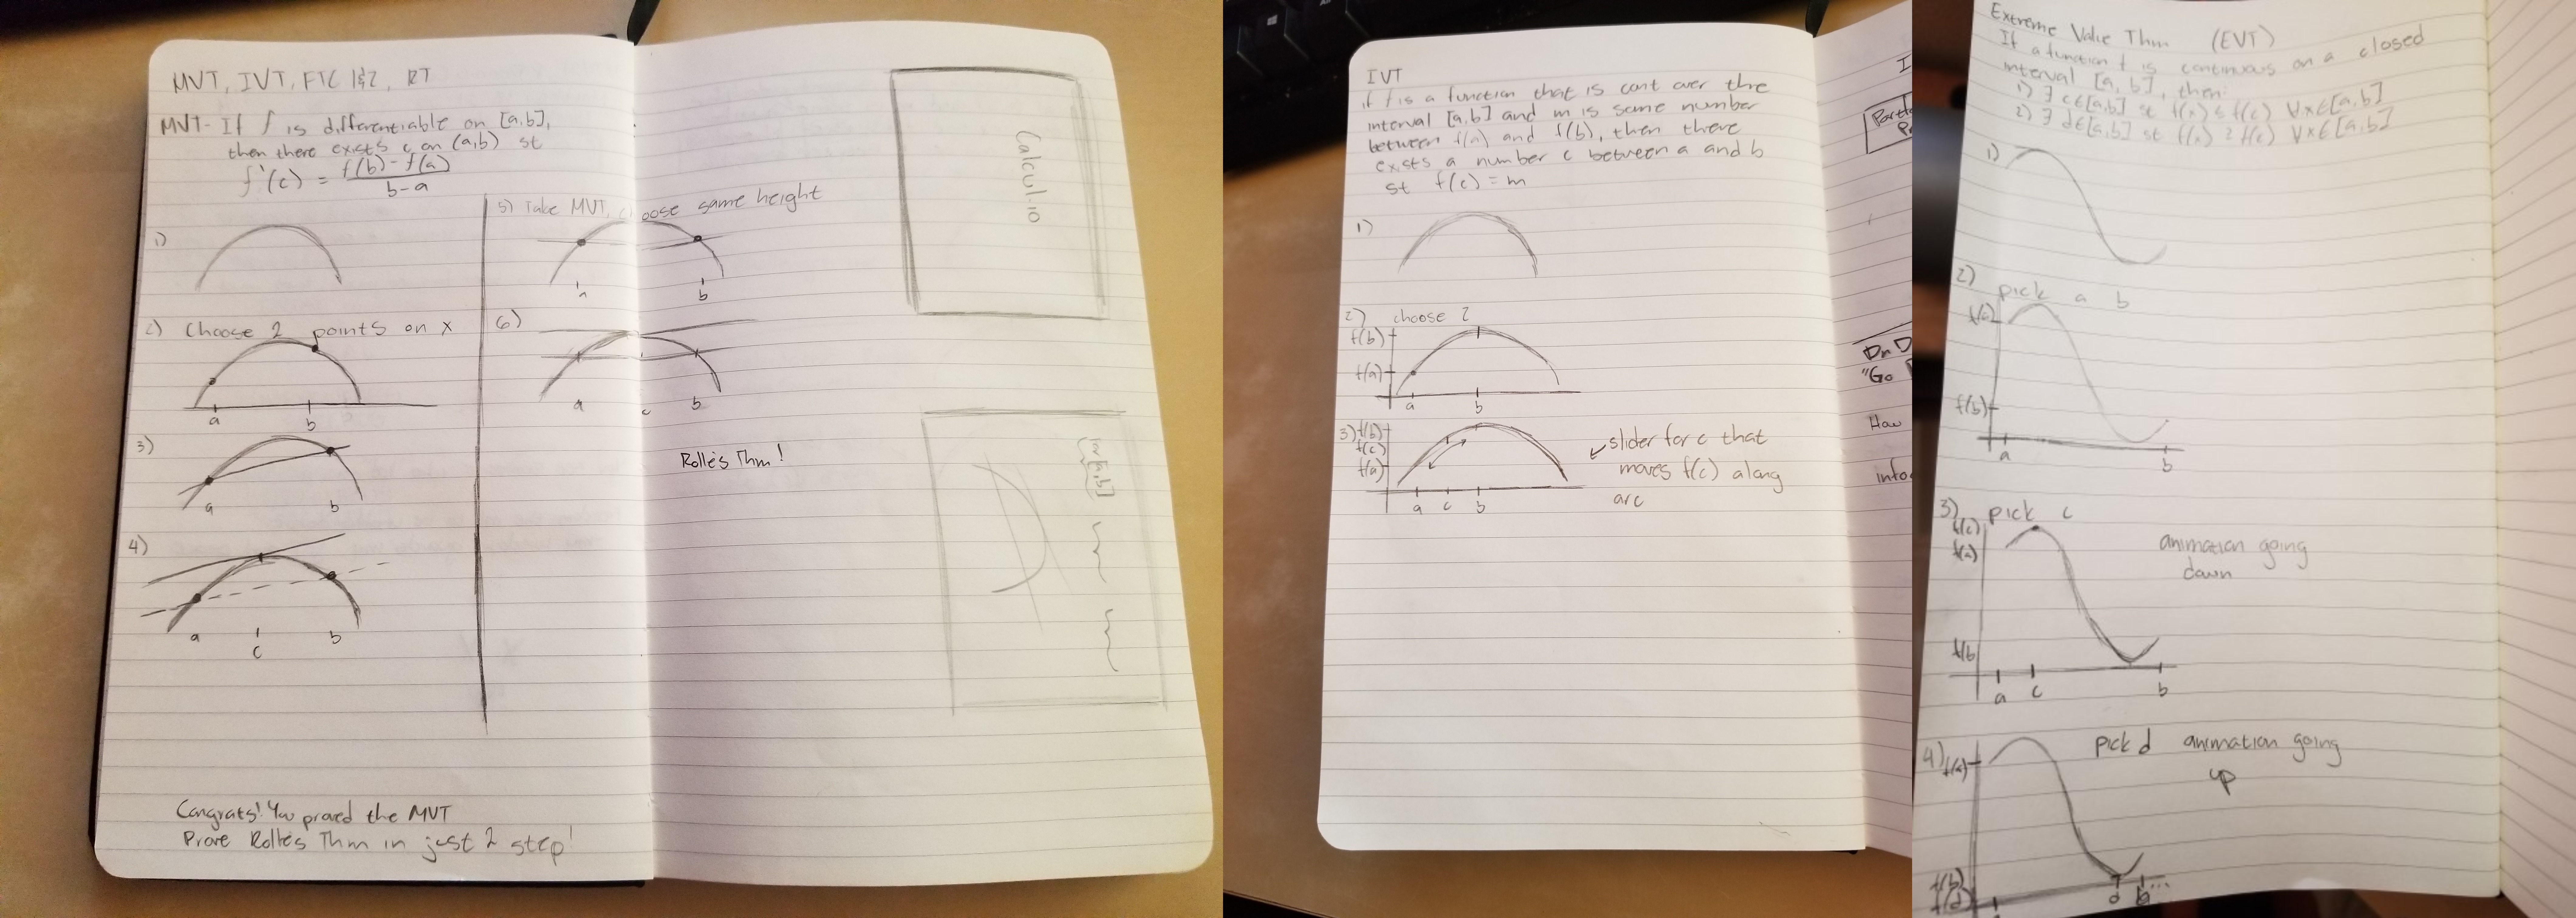 MVT, IVT, FTC 1&2, RT
MVT- If f is differentiable on [a,b],
then there exists c on (a,b) st
f'(c) = f(b) - f(a)
b-a
1)
2) Choose 2 points on x
a b
3)
a b
4)
a c b
Congrats! You proved the MVT
Prove Rolle's Thm in just 2 step!
5) Take MVT, choose same height
a b
6)
a c b
Rolle's Thm!
Calcul-10
for [a,b]
IVT
if f is a function that is cont over thre
interval [a,b] and m is some number
between f(a) and f(b), then there
exists a number c between a and b
st f(c) = m
1)
2) choose 2
f(b)
f(a)
a b
3) f(b)
f(c)
f(a)
a c b
slider for c that
moves f(c) along
arc
I
Dr D
"Go
How
info
Extreme Value Thm (EVT)
If a function f is continuous on a closed
interval [a, b], then:
1) ∃ c∈[a,b] st f(x) ≤ f(c) ∀x∈[a,b]
2) ∃ d∈[a,b] st f(x) ≥ f(c) ∀x∈[a,b]
1)
2) pick a b
f(a)
f(b)
a b
3) pick c
f(c)
f(a)
f(b
a c b
animation going
down
4) pick d animation going
up
f(a)
f(b)
f(d)
d b...